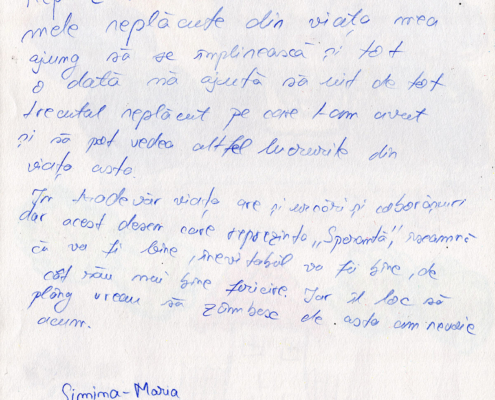 mele neplăcute din viața mea
ajung să se împlinească și tot
o dată mă ajută să uit de tot
trecutul neplăcut pe care l-am avut
și să pot vedea altfel lucrurile din
viața asta.
În adevăr viața are și urcări și coborâșuri
dar acest desen care reprezintă „Speranță", înseamnă
că va fi bine, inevitabil va fi bine, de
cât rău mai bine fericire. Iar în loc să
plâng vreau să zâmbesc de asta am nevoie
acum.
Simina-Maria